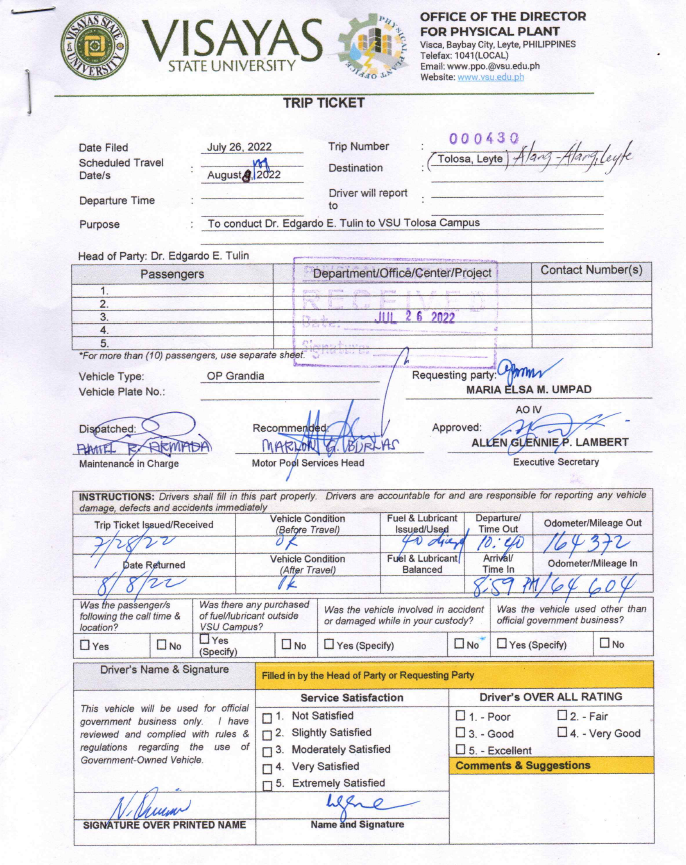 VISAYAS STATE UNIVERSITY
VISAYAS
STATE UNIVERSITY
PHYSICAL PLANT OFFICE
OFFICE OF THE DIRECTOR
FOR PHYSICAL PLANT
Visca, Baybay City, Leyte, PHILIPPINES
Telefax: 1041(LOCAL)
Email: www.ppo.@vsu.edu.ph
Website: www.vsu.edu.ph
TRIP TICKET
Date Filed July 26, 2022 Trip Number : 000430
Scheduled Travel Date/s : August 8, 2022 Destination : (Tolosa, Leyte) Alang-Alang, Leyte
Departure Time : Driver will report to :
Purpose : To conduct Dr. Edgardo E. Tulin to VSU Tolosa Campus
Head of Party: Dr. Edgardo E. Tulin
Passengers Department/Office/Center/Project Contact Number(s)
1.
2.
3.
4.
5.
RECEIVED
Date: JUL 26 2022
Signature:
*For more than (10) passengers, use separate sheet.
Vehicle Type: OP Grandia Requesting party:
Vehicle Plate No.: MARIA ELSA M. UMPAD
AO IV
Dispatched: Recommended: Approved:
R. ARMADA MARLON G. BURLAS ALLEN GLENNIE P. LAMBERT
Maintenance in Charge Motor Pool Services Head Executive Secretary
INSTRUCTIONS: Drivers shall fill in this part properly. Drivers are accountable for and are responsible for reporting any vehicle
damage, defects and accidents immediately
Trip Ticket Issued/Received Vehicle Condition (Before Travel) Fuel & Lubricant Issued/Used Departure/ Time Out Odometer/Mileage Out
7/28/22 ok 40 diesel 10:40 164372
Date Returned Vehicle Condition (After Travel) Fuel & Lubricant Balanced Arrival/ Time In Odometer/Mileage In
8/8/22 ok 8:59 PM 164604
Was the passenger/s following the call time & location? Was there any purchased of fuel/lubricant outside VSU Campus? Was the vehicle involved in accident or damaged while in your custody? Was the vehicle used other than official government business?
Yes No Yes (Specify) No Yes (Specify) No Yes (Specify) No
Driver's Name & Signature Filled in by the Head of Party or Requesting Party
Service Satisfaction Driver's OVER ALL RATING
This vehicle will be used for official
government business only. I have
reviewed and complied with rules &
regulations regarding the use of
Government-Owned Vehicle.
1. Not Satisfied
2. Slightly Satisfied
3. Moderately Satisfied
4. Very Satisfied
5. Extremely Satisfied
1. - Poor 2. - Fair
3. - Good 4. - Very Good
5. - Excellent
Comments & Suggestions
SIGNATURE OVER PRINTED NAME Name and Signature